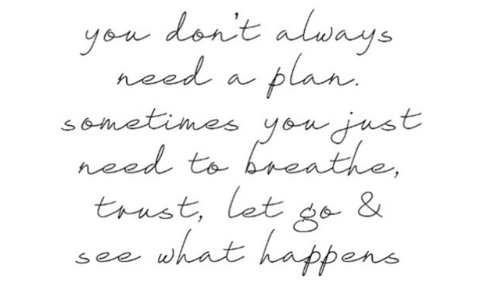 you don't always
need a plan.
sometimes you just
need to breathe,
trust, let go &
see what happens